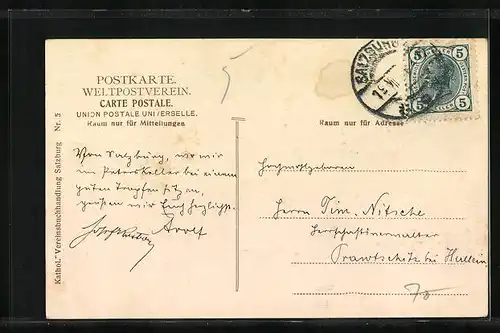 POSTKARTE.
WELTPOSTVEREIN.
CARTE POSTALE.
UNION POSTALE UNIVERSELLE.
Raum nur für Mitteilungen
Von Salzburg, wo wir
im Peterskeller bei einem
guten Tropfen sitzen,
grüßen wir Euch herzlichst.
Adolf
Kathol. Vereinsbuchhandlung Salzburg Nr. 5
5
SALZBURG
5 5
5 5
Raum nur für Adresse
Hochwohlgeboren
Herrn Tim. Nitsche
Herrschaftsverwalter
Prawtschitz bei Hullein